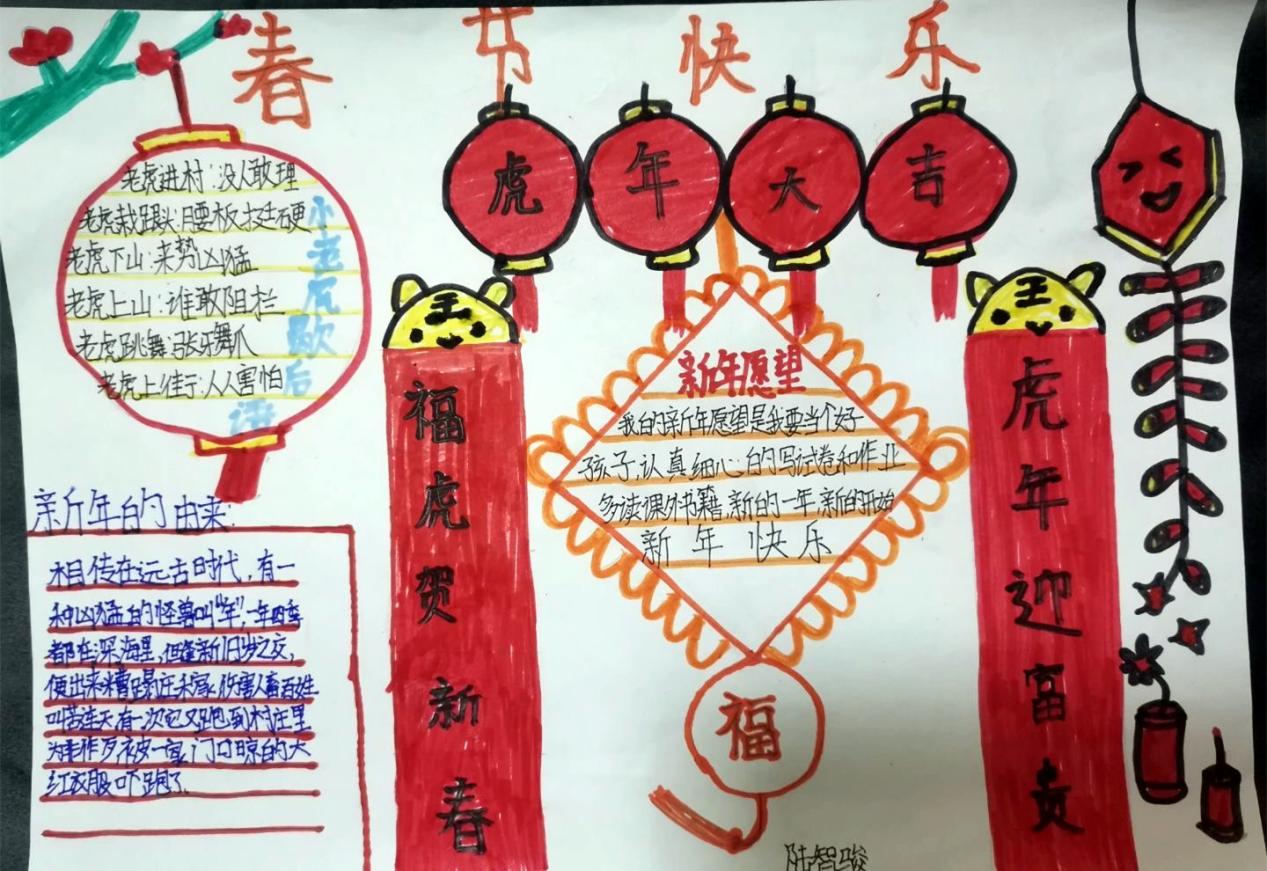 春节快乐
虎年大吉
老虎进村:没人敢理
老虎栽跟头:腰板挺硬
老虎下山:来势凶猛
老虎上山:谁敢阻拦
老虎跳舞:张牙舞爪
老虎上街:人人害怕
小老虎歇后语
新年的由来:
相传在远古时代,有一
种凶猛的怪兽叫“年”,一年四季
都在深海里,但逢新旧岁之交,
便出来糟蹋庄禾家,伤害人畜百姓
叫苦连天有一次它又跑到村庄里
为非作歹被一家门口晾的大
红衣服吓跑了.
福虎贺新春
新年愿望
我的新年愿望是我要当个好
孩子,认真细心的写试卷和作业
多读课外书籍.新的一年,新的开始
新年快乐
福
虎年迎富贵
王
王
陆智骏